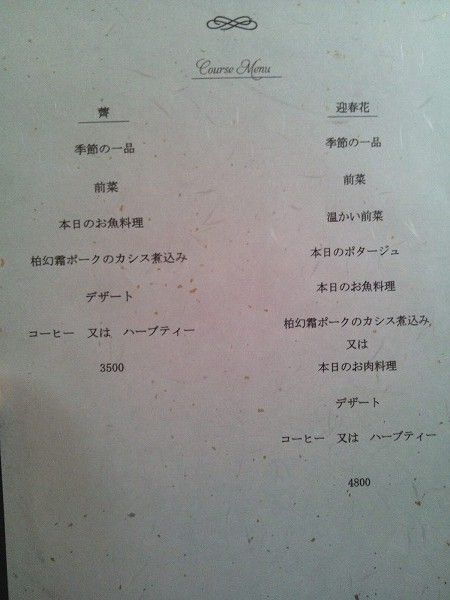 Course Menu
薺
季節の一品
前菜
本日のお魚料理
柏幻霜ポークのカシス煮込み
デザート
コーヒー 又は ハーブティー
3500
迎春花
季節の一品
前菜
温かい前菜
本日のポタージュ
本日のお魚料理
柏幻霜ポークのカシス煮込み
又は
本日のお肉料理
デザート
コーヒー 又は ハーブティー
4800